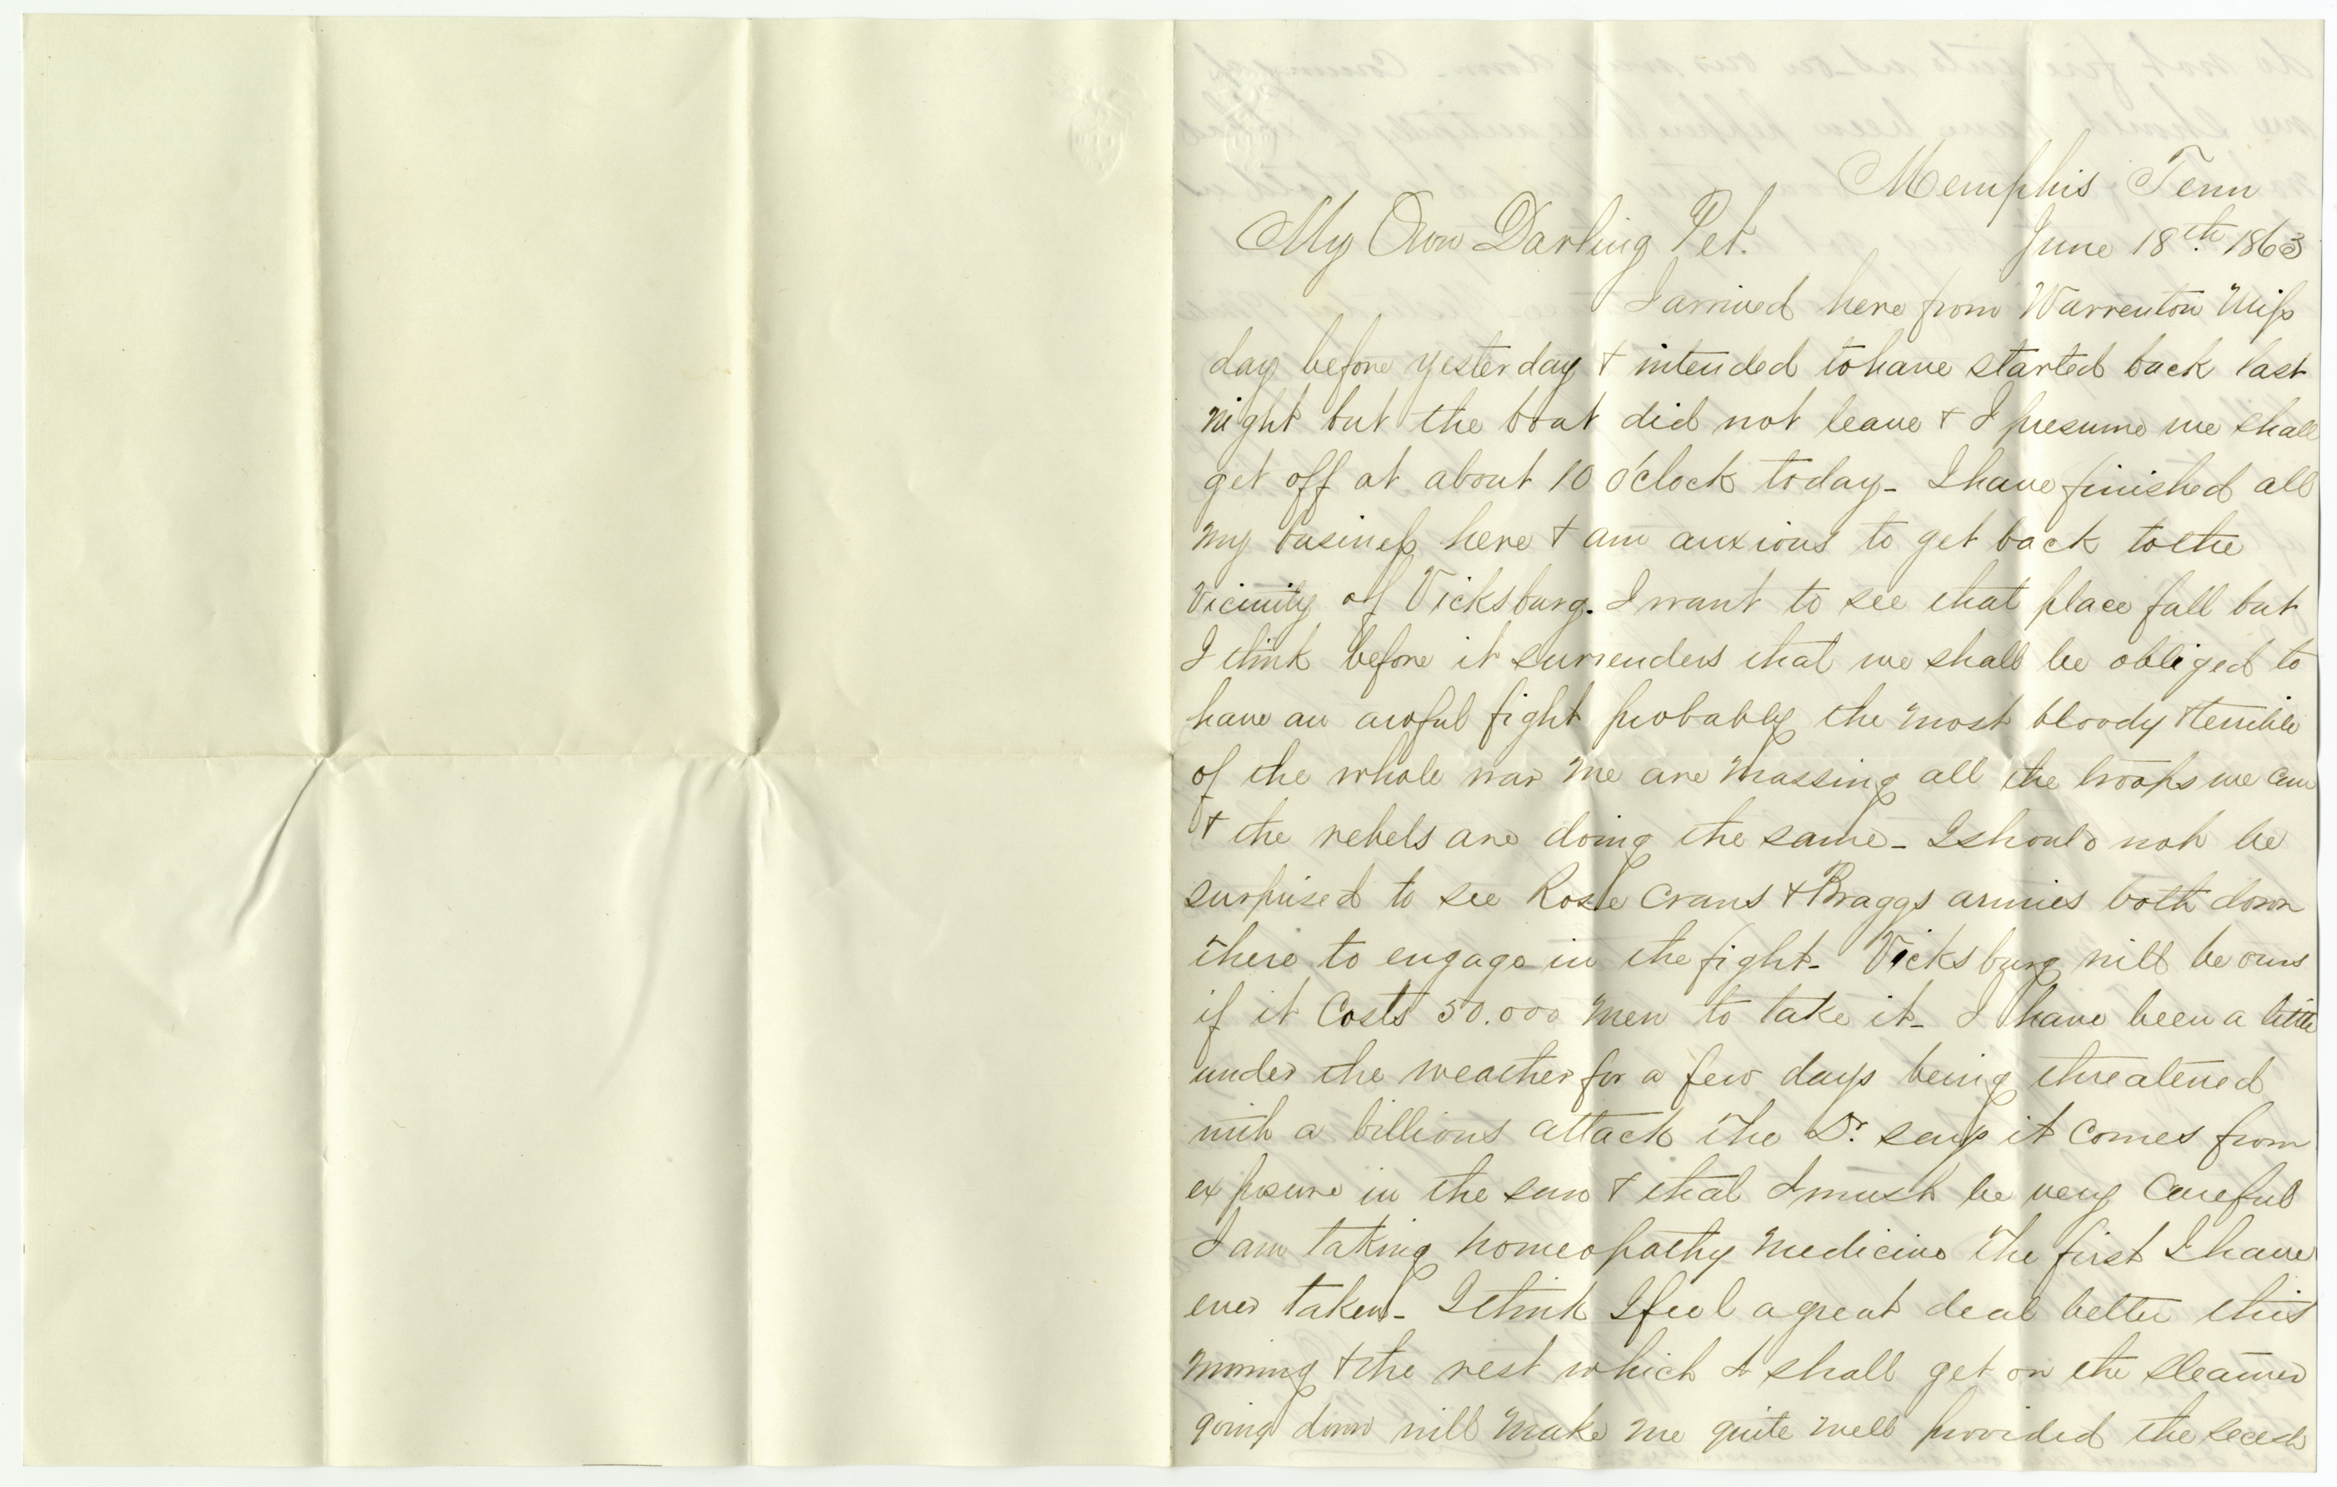 Memphis Tenn
June 18th 1863
My Own Darling Pet.
I arrived here from Warrenton Miss
day before yesterday & intended to have started back last
night but the boat did not leave & I presume we shall
get off at about 10 o'clock today - I have finished all
my business here & am anxious to get back to the
vicinity of Vicksburg. I want to see that place fall but
I think before it surrenders that we shall be obliged to
have an awful fight probably the most bloody & terrible
of the whole war We are massing all the troops we can
& the rebels are doing the same - I should not be
surprised to see Rose Crans & Braggs armies both down
there to engage in the fight - Vicksburg will be ours
if it Costs 50.000 men to take it - I have been a little
under the weather for a few days being threatened
with a billious attack The Dr. says it comes from
exposure in the sun & that I must be very careful
I am taking homeopathy medicine The first I have
ever taken - I think I feel a great deal better this
morning & the rest which I shall get on the steamer
going down will make me quite well provided the secesh